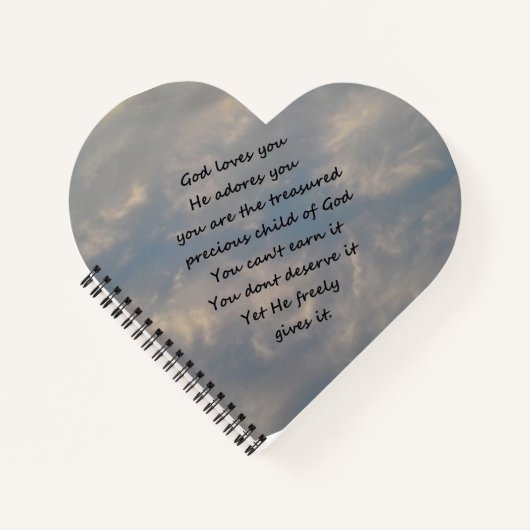 God loves you
He adores you
you are the treasured
precious child of God
You can't earn it
You dont deserve it
Yet He freely
gives it.